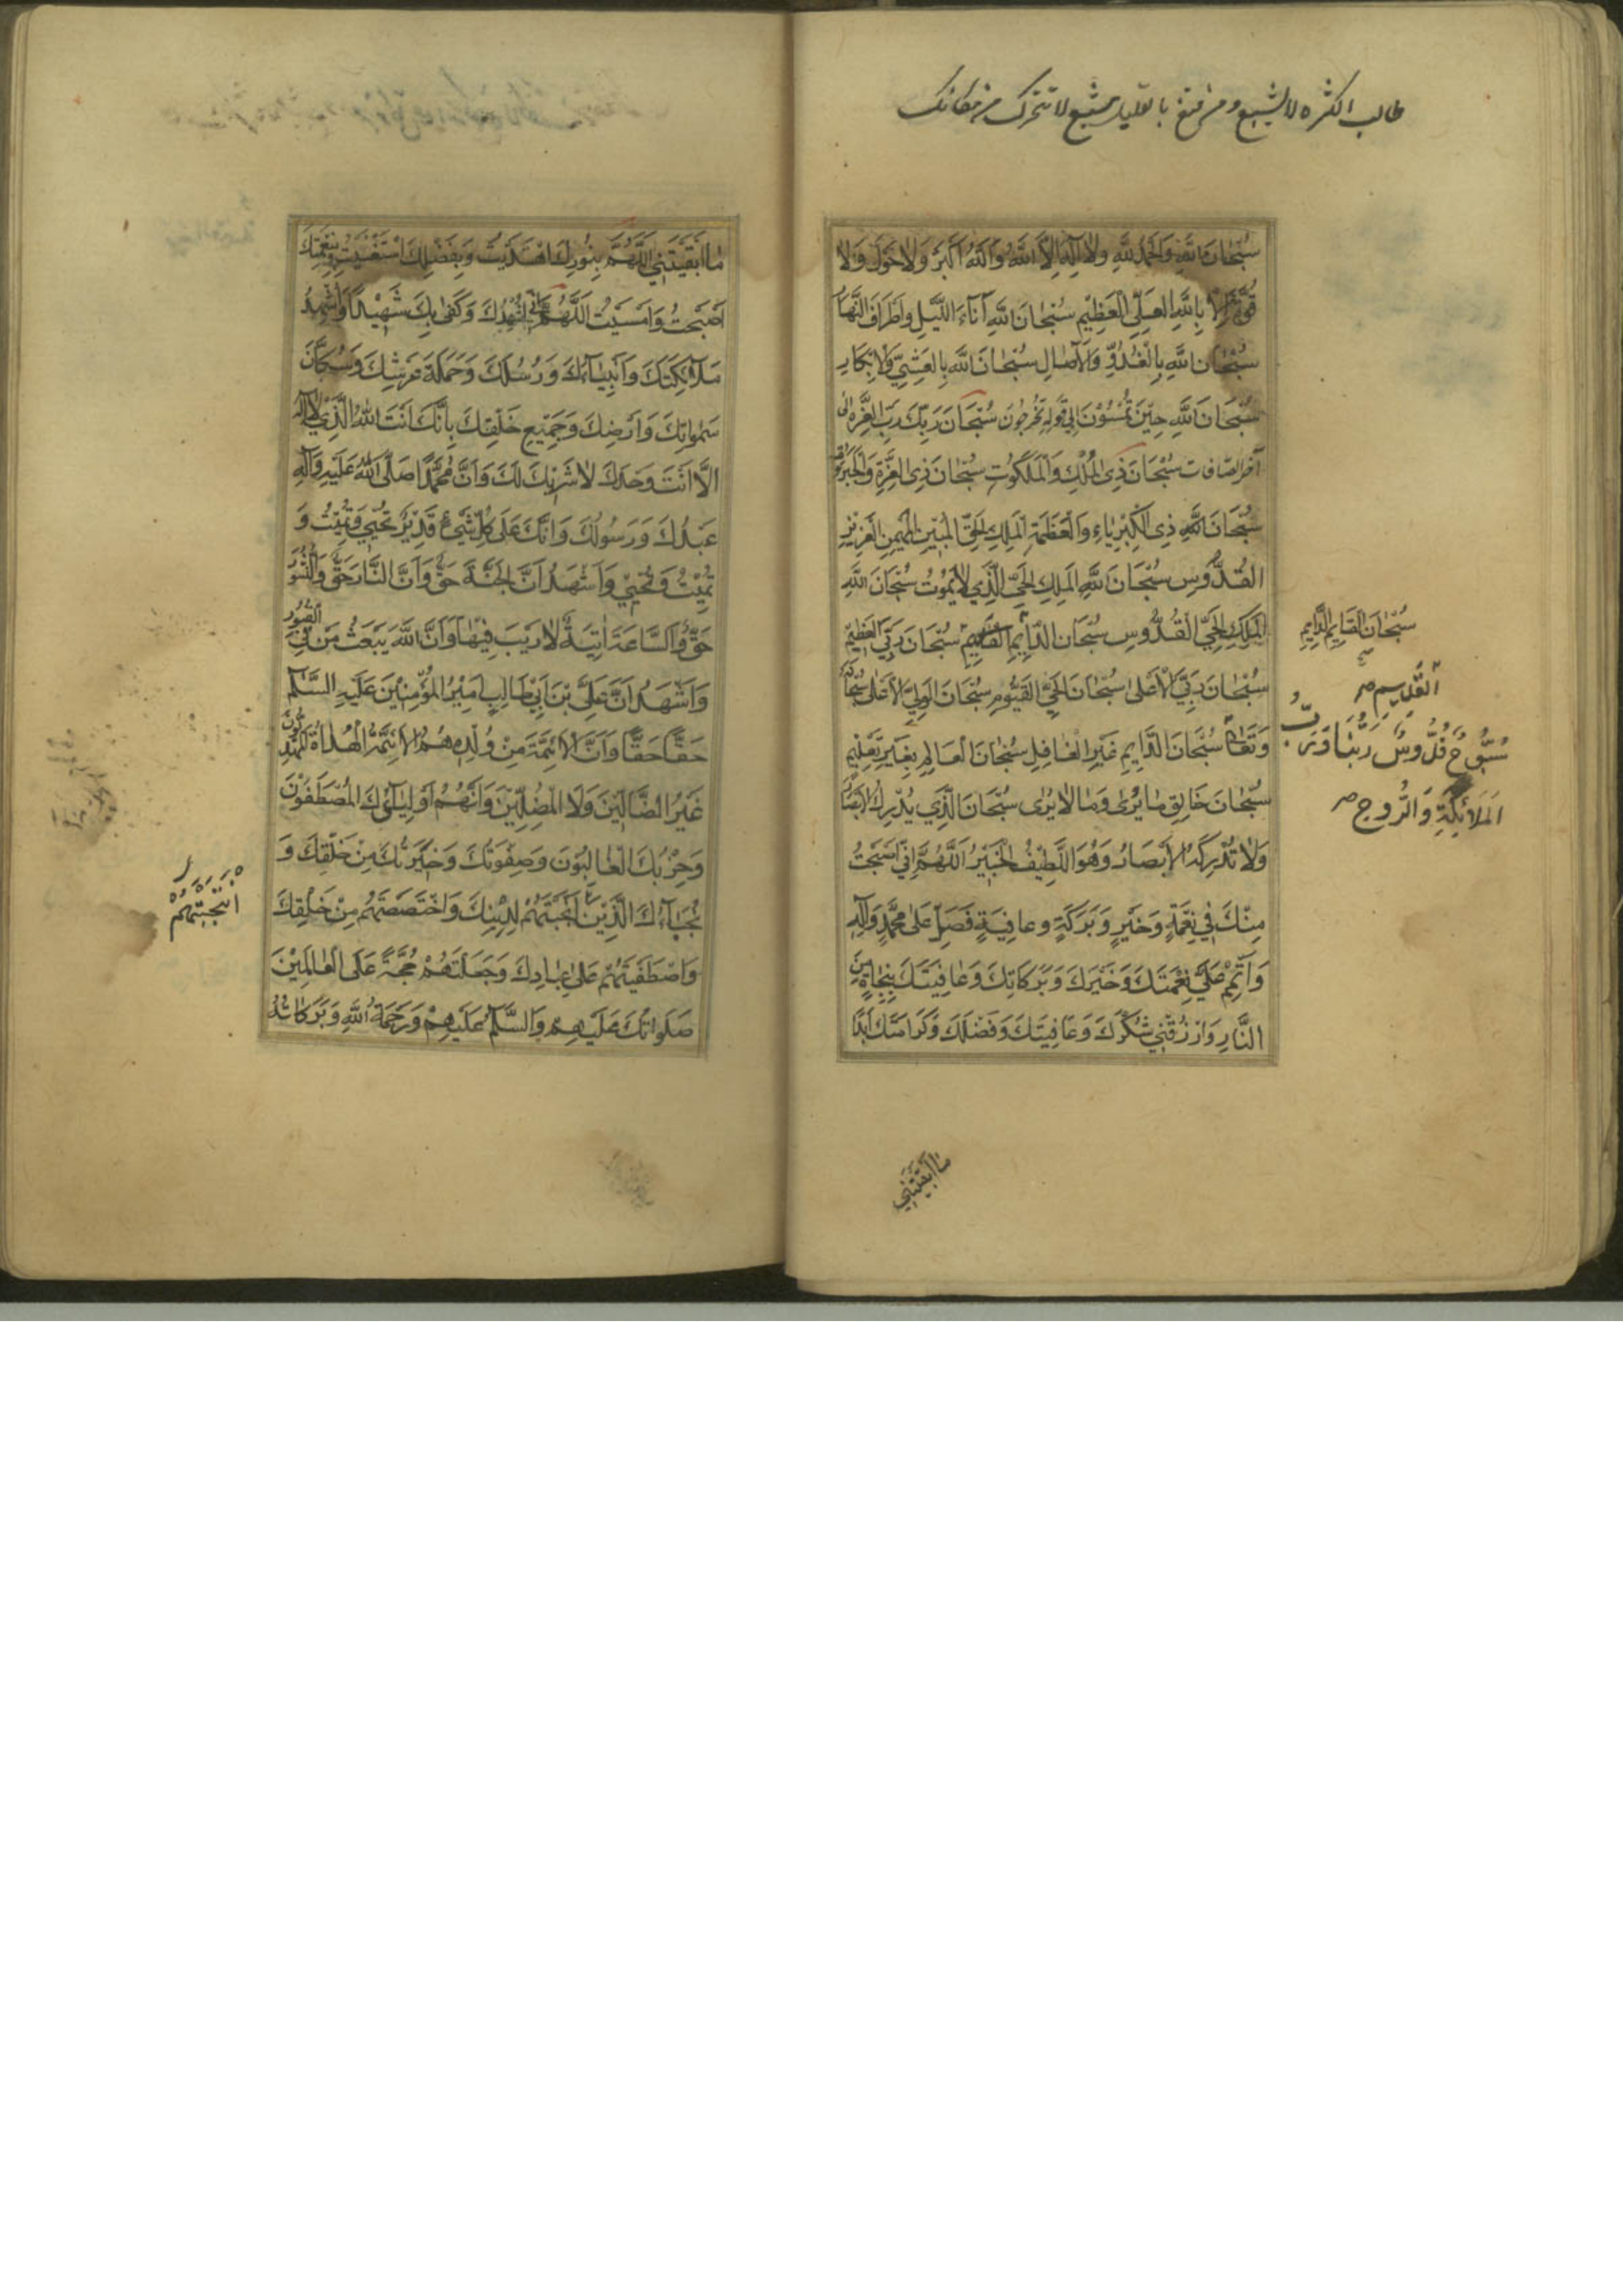 طالب الكثره لا يشبع و من قنع بالقليل يشبع لا تتحرك من مكانك
سُبْحَانَ اللَّهِ وَالْحَمْدُ لِلَّهِ وَلَا إِلٰهَ إِلَّا اللَّهُ وَاللَّهُ أَكْبَرُ وَلَا حَوْلَ وَلَا
قُوَّةَ إِلَّا بِاللَّهِ الْعَلِيِّ الْعَظِيْمِ سُبْحَانَ اللَّهِ آنَاءَ اللَّيْلِ وَأَطْرَافَ النَّهَارِ
سُبْحَانَ اللَّهِ بِالْغُدُوِّ وَالْآصَالِ سُبْحَانَ اللَّهِ بِالْعَشِيِّ وَالْإِبْكَارِ
سُبْحَانَ اللَّهِ حِيْنَ تُمْسُوْنَ الى قوله تُخْرَجُونَ سُبْحَانَ رَبِّكَ رَبِّ الْعِزَّةِ الى
آخر الصّافات سُبْحَانَ ذِي الْمُلْكِ وَالْمَلَكُوْتِ سُبْحَانَ ذِي الْعِزَّةِ وَالْجَبَرُوْتِ
سُبْحَانَ اللَّهِ ذِي الْكِبْرِيَاءِ وَالْعَظَمَةِ الْمَلِكِ الْحَقِّ الْمُبِيْنِ الْمُهَيْمِنِ الْعَزِيْزِ
الْقُدُّوسِ سُبْحَانَ اللَّهِ الْمَلِكِ الْحَيِّ الَّذِي لَا يَمُوْتُ سُبْحَانَ اللَّهِ
الْمَلِكِ الْحَيِّ الْقُدُّوسِ سُبْحَانَ الدَّايِمِ الْقَايِمِ سُبْحَانَ رَبِّيَ الْعَظِيْمِ
سُبْحَانَ الْقَايِمِ الدَّايِمِ
صح
سُبْحَانَ رَبِّيَ الْأَعْلَىٰ سُبْحَانَ الْحَيِّ الْقَيُّوْمِ سُبْحَانَ الْعَلِيِّ الْأَعْلَىٰ سُبْحَانَهُ
الْقَدِيمِ
وَتَعَالَىٰ سُبْحَانَ الدَّايِمِ غَيْرِ الْغَافِلِ سُبْحَانَ الْعَالِمِ بِغَيْرِ تَعْلِيْمٍ
سُبُّوحٌ قُدُّوسٌ رَبُّنَا وَرَبُّ
الْمَلَائِكَةِ وَالرُّوحِ
سُبْحَانَ خَالِقِ مَا يُرَىٰ وَمَا لَا يُرَىٰ سُبْحَانَ الَّذِي يُدْرِكُ الْأَبْصَارَ
وَلَا تُدْرِكُهُ الْأَبْصَارُ وَهُوَ اللَّطِيْفُ الْخَبِيْرُ اللَّهُمَّ إِنِّي أَصْبَحْتُ
مِنْكَ فِي نِعْمَةٍ وَخَيْرٍ وَبَرَكَةٍ وَعَافِيَةٍ فَصَلِّ عَلَىٰ مُحَمَّدٍ وَآلِهِ
وَأَتْمِمْ عَلَيَّ نِعْمَتَكَ وَخَيْرَكَ وَبَرَكَاتِكَ وَعَافِيَتَكَ بِنَجَاةٍ مِنَ
النَّارِ وَارْزُقْنِي شُكْرَكَ وَعَافِيَتَكَ وَفَضْلَكَ وَكَرَامَتَكَ أَبَدًا
مَا أَبْقَيْتَنِي
مَا أَبْقَيْتَنِي اللَّهُمَّ بِنُوْرِكَ اهْتَدَيْتُ وَبِفَضْلِكَ اسْتَغْنَيْتُ وَبِنِعْمَتِكَ
أَصْبَحْتُ وَأَمْسَيْتُ اللَّهُمَّ إِنِّي أُشْهِدُكَ وَكَفَىٰ بِكَ شَهِيْدًا وَأُشْهِدُ
مَلَائِكَتَكَ وَأَنْبِيَاءَكَ وَرُسُلَكَ وَحَمَلَةَ عَرْشِكَ وَسُكَّانَ
سَمٰوَاتِكَ وَأَرْضِكَ وَجَمِيْعَ خَلْقِكَ بِأَنَّكَ أَنْتَ اللَّهُ الَّذِي لَا إِلٰهَ
إِلَّا أَنْتَ وَحْدَكَ لَا شَرِيْكَ لَكَ وَأَنَّ مُحَمَّدًا صَلَّى اللَّهُ عَلَيْهِ وَآلِهِ
عَبْدُكَ وَرَسُولُكَ وَأَنَّكَ عَلَىٰ كُلِّ شَيْءٍ قَدِيْرٌ تُحْيِي وَتُمِيْتُ وَ
تُمِيْتُ وَتُحْيِي وَأَشْهَدُ أَنَّ الْجَنَّةَ حَقٌّ وَأَنَّ النَّارَ حَقٌّ وَالنُّشُوْرَ
حَقٌّ وَالسَّاعَةَ آتِيَةٌ لَا رَيْبَ فِيْهَا وَأَنَّ اللَّهَ يَبْعَثُ مَنْ فِي الْقُبُوْرِ
وَأَشْهَدُ أَنَّ عَلِيَّ بْنَ أَبِيْ طَالِبٍ أَمِيْرُ الْمُؤْمِنِيْنَ عَلَيْهِ السَّلَامُ
حَقًّا حَقًّا وَأَنَّ الْأَئِمَّةَ مِنْ وُلْدِهِ هُمُ الْأَئِمَّةُ الْهُدَاةُ الْمَهْدِيُّوْنَ
غَيْرُ الضَّالِّيْنَ وَلَا الْمُضِلِّيْنَ وَأَنَّهُمْ أَوْلِيَاؤُكَ الْمُصْطَفَوْنَ
وَحِزْبُكَ الْغَالِبُوْنَ وَصِفْوَتُكَ وَخِيَرَتُكَ مِنْ خَلْقِكَ وَ
نُجَبَاءُكَ الَّذِيْنَ انْجَبْتَهُمْ لِدِيْنِكَ وَاخْتَصَصْتَهُمْ مِنْ خَلْقِكَ
انْتَجَبْتَهُمْ
وَاصْطَفَيْتَهُمْ عَلَىٰ عِبَادِكَ وَجَعَلْتَهُمْ حُجَّةً عَلَى الْعَالَمِيْنَ
صَلَوَاتُكَ عَلَيْهِمْ وَالسَّلَامُ عَلَيْهِمْ وَرَحْمَةُ اللَّهِ وَبَرَكَاتُهُ